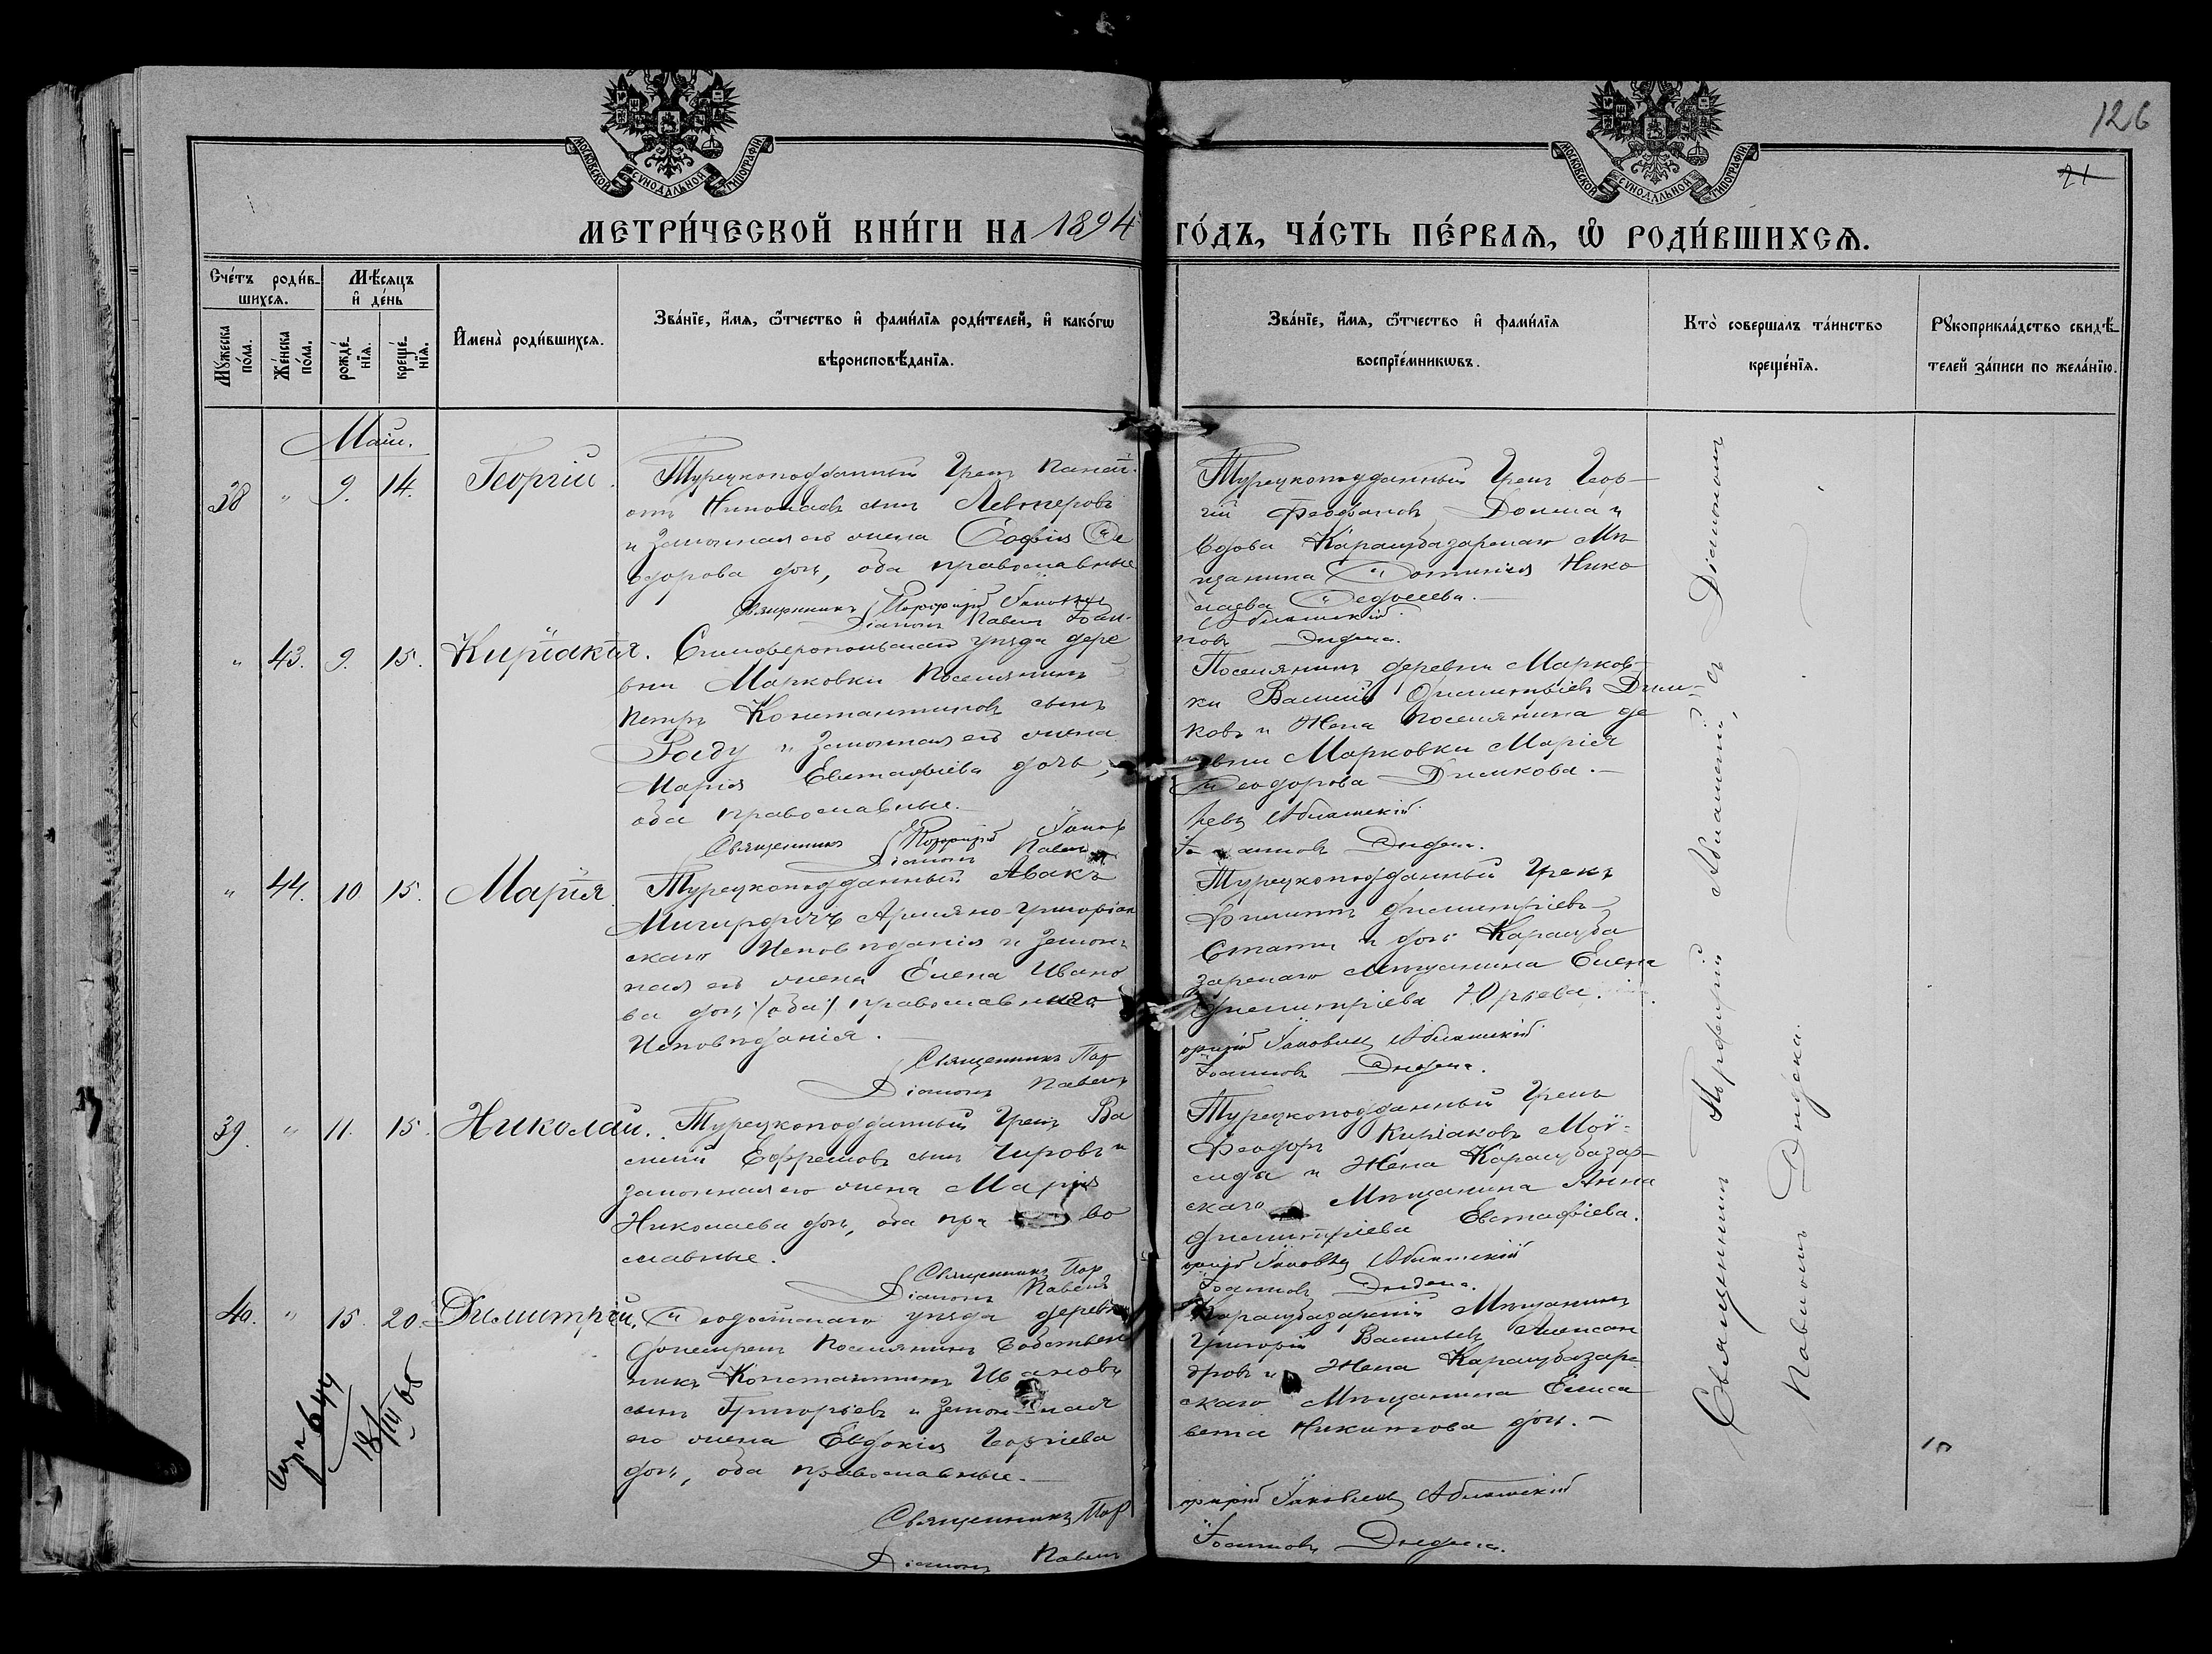 126
21
МОСКОВСКОЙ СѴНОДАЛЬНОЙ ТИПОГРАФІИ.
МОСКОВСКОЙ СѴНОДАЛЬНОЙ ТИПОГРАФІИ.
МЕТРИ́ЧЕСКОЙ КНИ́ГИ НА 1894 ГО́ДЪ, ЧА́СТЬ ПЕ́РВАѦ, Ѽ РОДИ́ВШИХСѦ.
Сче́тъ роди́в-
шихсѧ.
Мꙋ́жеска по́ла.
Же́нска по́ла.
Мѣ́сѧцъ
и҆ де́нь
рожде́нїѧ.
креще́нїѧ.
И҆мена̀ роди́вшихсѧ.
Зва́нїе, и҆́мѧ, ѻ҆́тчество и҆ фами́лїѧ роди́телей, и҆ како́гѡ
вѣроисповѣ́данїѧ.
Зва́нїе, и҆́мѧ, ѻ҆́тчество и҆ фами́лїѧ
воспрїе́мникѡвъ.
Кто̀ соверша́лъ та́инство
креще́нїѧ.
Рꙋкоприкла́дство свидѣ́-
телей за́писи по жела́нїю.
Маій.
38 " 9. 14. Георгій.
Турецкоподданный Грекъ Панай-
отъ Николаевъ сынъ Левтеровъ
и Законная его жена Софія Ѳе
одорова дочь, оба православные
Священникъ Порфирій Іаковл
Діаконъ Павелъ Іоан-
Турецкоподданный Грекъ Геор-
гій Феофановъ и
Вдова Карасубазарскаго Мѣ
щанина Николаева
Абламскій
новъ Дидека.
" 43. 9. 15. Киріакія.
Симферопольскаго уѣзда дере
вни Марковки Поселянинъ
Петръ Константиновъ сынъ
Раду и Законная его жена
Марія Евстафіева дочь,
оба православные.
Священникъ Порфирій Іаков
Діаконъ Павелъ
Поселянинъ деревни Марков-
ки Василій Димитріевъ Дим-
ковъ и Жена поселянина де
ревни Марковки Марія
Ѳеодорова Димкова.
левъ Абламскій
Іоанновъ Дидека.
" 44. 10 15. Марія.
Турецкоподданный Авакъ
Мигирдичъ Армяно-Григоріан
скаго Исповѣданія и Закон
ная его жена Елена Ивано
ва дочь /оба/ православнаго
Исповѣданія.
Священникъ Пор
Діаконъ Павелъ
Турецкоподданный Грекъ
Филиппъ Димитріевъ
Стати и дочь Карасуба
зарскаго Мѣщанина Елена
Димитріева Юрьева.
фирій Іаковлев Абламскій
Іоанновъ Дидека.
39. " 11. 15. Николай.
Турецкоподданный Грекъ Ва
силій Ефремовъ сынъ Чировъ и
законная его жена Марія
Николаева дочь, оба пра во
славные.
Священникъ Пор
Діаконъ Павелъ
Турецкоподданный Грекъ
Феодоръ Киріаковъ Мой-
сиди и Жена Карасубазар-
скаго Мѣщанина Анна
Димитріева Евстафіева.
фирій Іаковлев Абламскій
Іоанновъ Дидека.
40. " 15. 20. Димитрій.
Ѳеодосійскаго уѣзда деревни
Поселянинъ Собствен
никъ Константинъ Ивановъ
сынъ Григорьевъ и Законная
его жена Евдокія Георгіева
дочь, оба православные.
Священникъ Пор
Діаконъ Павелъ
Карасубазарскій Мѣщанинъ
Григорій Васильевъ Алексан
дровъ и Жена Карасубазар-
скаго Мѣщанина Елиса
вета Никитова дочь.
фирій Іаковлев Абламскій
Іоанновъ Дидека.
Священникъ Порфирій Абламскій, съ Діакономъ
Павломъ Дидека.
644
18/IV 65